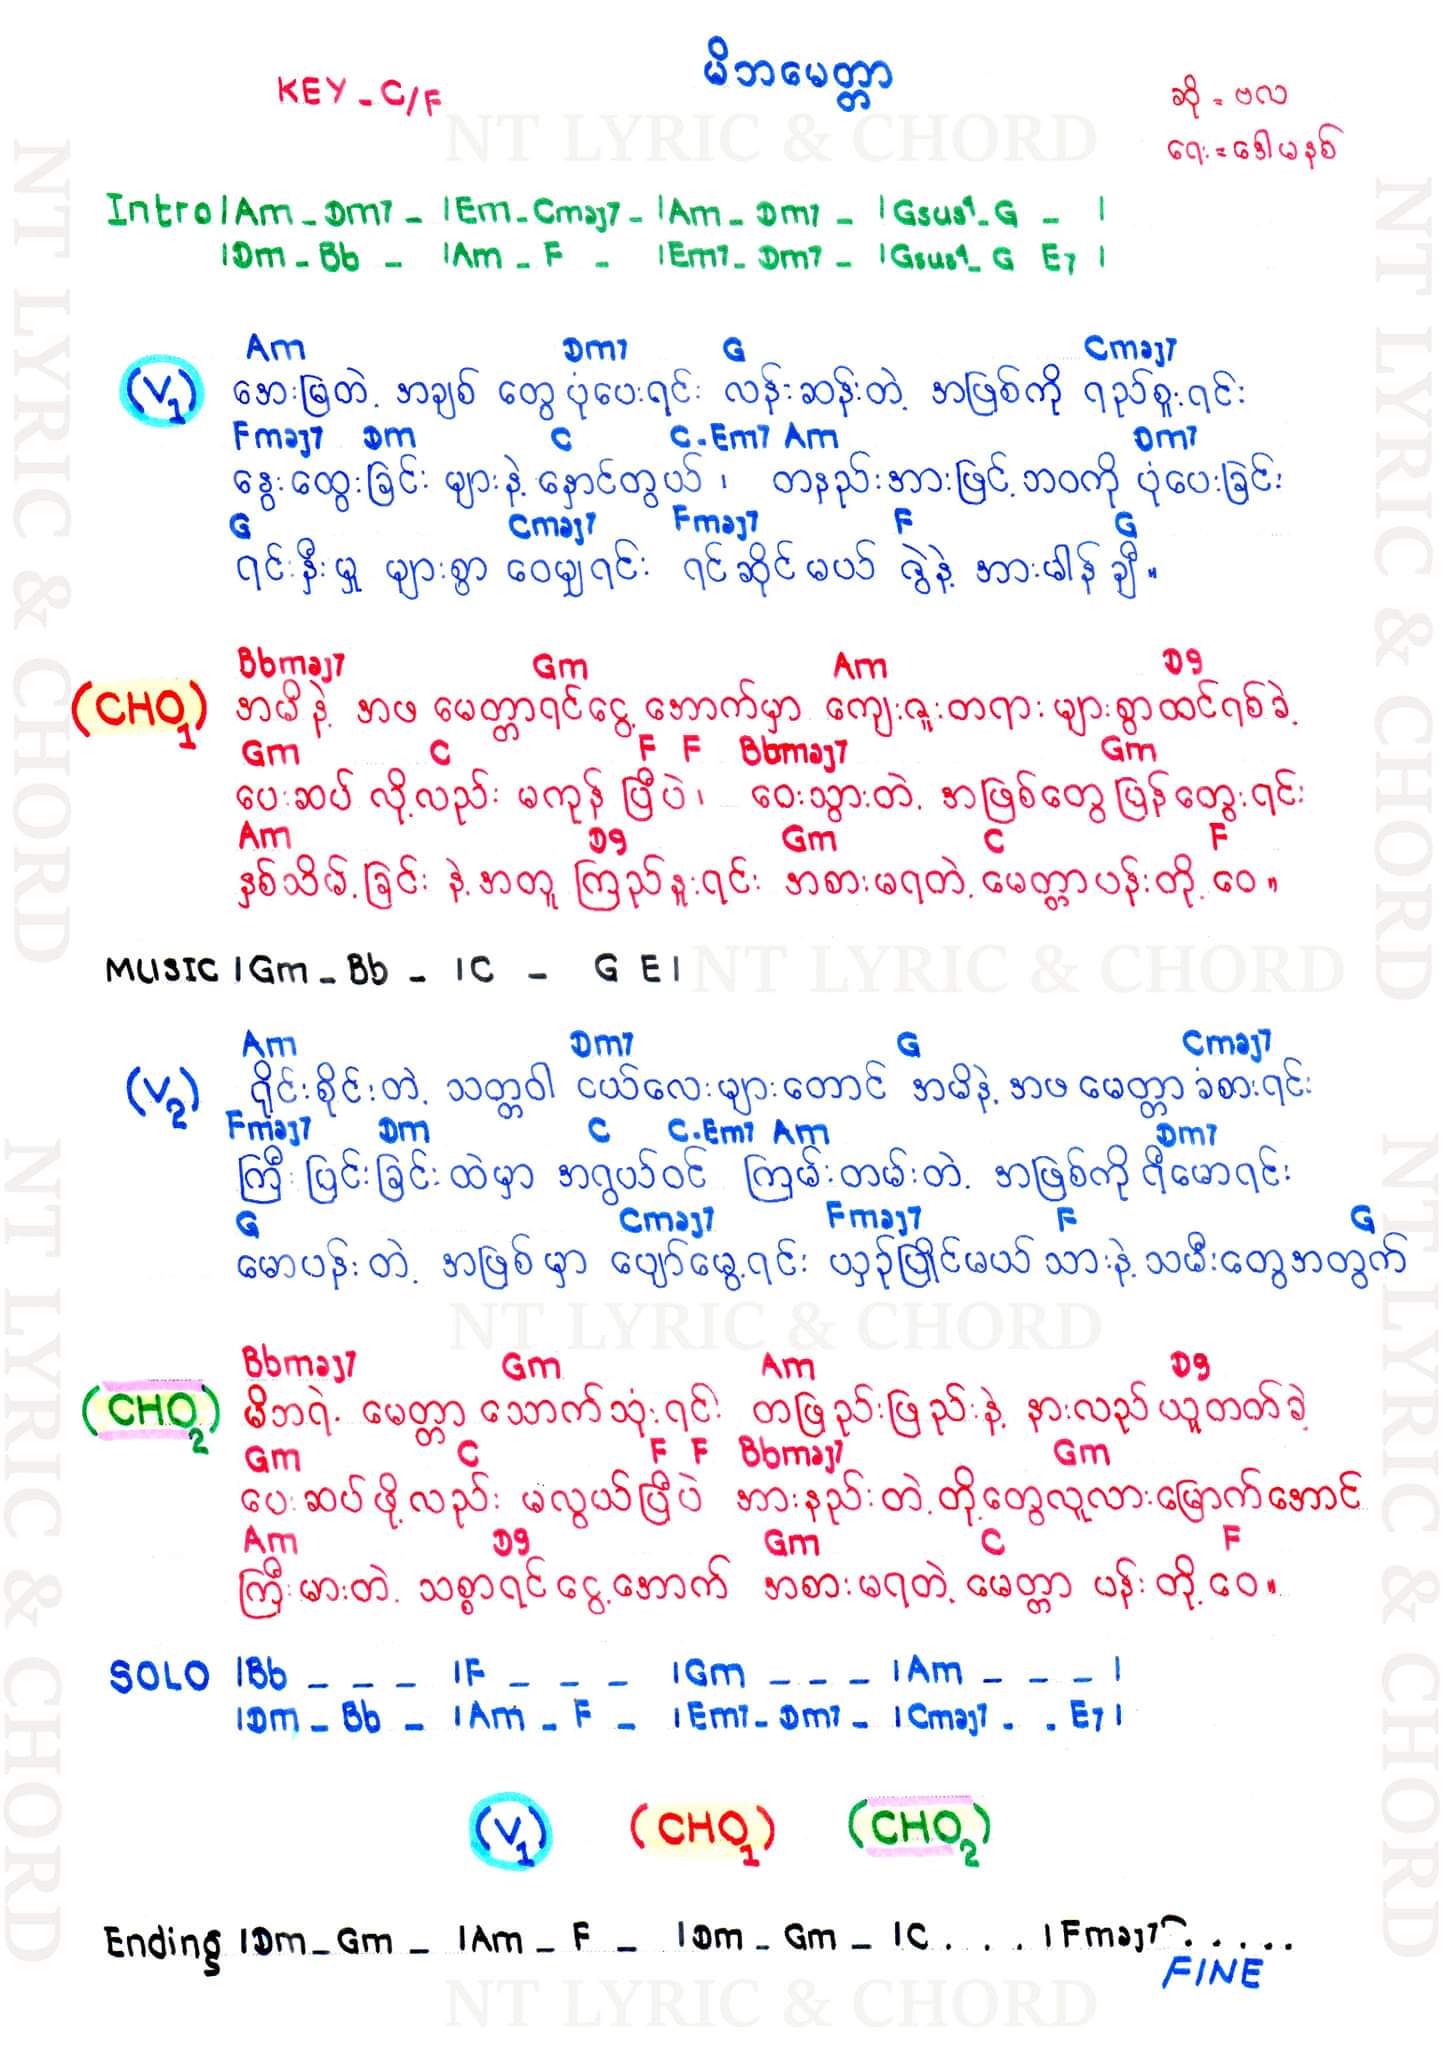 မိဘမေတ္တာ
KEY - C/F
ဆို = ဗလ
ရေး = ဒေါ်မနစ်
NT LYRIC & CHORD
Intro |Am - Dm7 - |Em - Cmaj7 - |Am - Dm7 - |Gsus4 - G - |
|Dm - Bb - |Am - F - |Em7 - Dm7 - |Gsus4 - G E7 |
Am Dm7 G Cmaj7
(V1) အေးမြတဲ့ အချစ် တွေ ပုံပေးရင်း လန်းဆန်းတဲ့ အဖြစ်ကို ရည်စူးရင်း
Fmaj7 Dm C C.Em7 Am Dm7
နွေးထွေးခြင်း များနဲ့ နှောင်တွယ် ၊ တနည်းအားဖြင့် ဘဝကို ပုံပေးခြင်း
G Cmaj7 Fmaj7 F G
ရင်းနှီးမှု များစွာ ဝေမျှရင်း ရင်ဆိုင်မယ် ဇွဲနဲ့ အားမာန် ချီ ။
Bbmaj7 Gm Am D9
(CHO1) အမိ နဲ့ အဖ မေတ္တာရင်ငွေ့ အောက်မှာ ကျေးဇူးတရား များစွာထင်ရစ်ခဲ့
Gm C F F Bbmaj7 Gm
ပေးဆပ် လို့လည်း မကုန် ပြီပဲ ၊ ဝေးသွားတဲ့ အဖြစ်တွေ ပြန်တွေးရင်း
Am D9 Gm C F
နှစ်သိမ့်ခြင်း နဲ့အတူ ကြည်နူးရင်း အစားမရတဲ့ မေတ္တာပန်းတို့ ဝေ ။
MUSIC |Gm - Bb - |C - G E|
NT LYRIC & CHORD
Am Dm7 G Cmaj7
(V2) ရိုင်းစိုင်းတဲ့ သတ္တဝါ ငယ်လေးများတောင် အမိနဲ့ အဖ မေတ္တာ ခံစားရင်း
Fmaj7 Dm C C.Em7 Am Dm7
ကြီးပြင်းခြင်းထဲမှာ အရွယ်ဝင် ကြမ်းတမ်းတဲ့ အဖြစ်ကို ရီမောရင်း
G Cmaj7 Fmaj7 F G
မောပန်းတဲ့ အဖြစ်မှာ ပျော်မွေ့ရင်း ယှဉ်ပြိုင်မယ် သားနဲ့ သမီးတွေအတွက်
NT LYRIC & CHORD
Bbmaj7 Gm Am D9
(CHO2) မိဘရဲ့ မေတ္တာ သောက်သုံးရင်း တဖြည်းဖြည်းနဲ့ နားလည် ယူတတ်ခဲ့
Gm C F F Bbmaj7 Gm
ပေးဆပ်ဖို့လည်း မလွယ်ပြီပဲ အားနည်းတဲ့ တို့တွေလူလားမြောက်အောင်
Am D9 Gm C F
ကြီးမားတဲ့ သစ္စာရင်ငွေ့အောက် အစားမရတဲ့ မေတ္တာ ပန်း တို့ ဝေ ။
SOLO |Bb - - - |F - - - |Gm - - - |Am - - - |
|Dm - Bb - |Am - F - |Em7 - Dm7 - |Cmaj7 . . E7 |
(V1) (CHO1) (CHO2)
Ending |Dm - Gm - |Am - F - |Dm - Gm - |C . . . |Fmaj7 . . . . .
FINE
NT LYRIC & CHORD
NT LYRIC & CHORD
NT LYRIC & CHORD
NT LYRIC & CHORD
NT LYRIC & CHORD